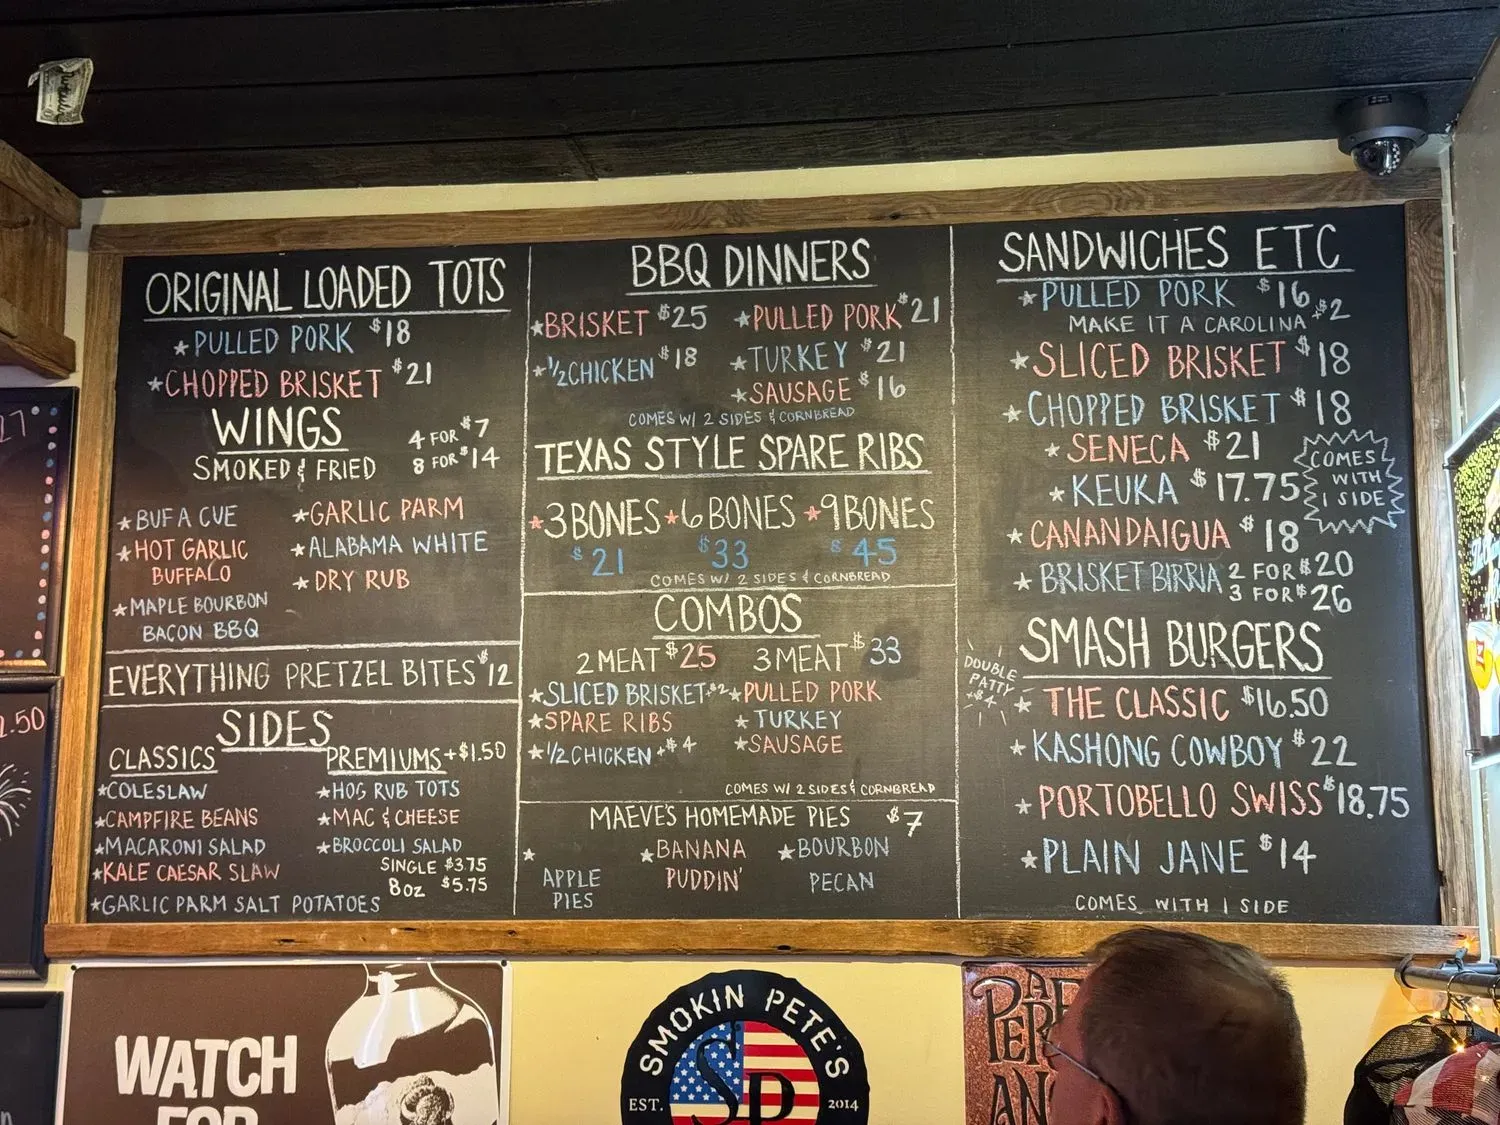 ORIGINAL LOADED TOTS
★PULLED PORK $18
★CHOPPED BRISKET $21
WINGS
SMOKED & FRIED
4 FOR $7
8 FOR $14
★BUF A CUE
★HOT GARLIC
BUFFALO
★MAPLE BOURBON
BACON BBQ
★GARLIC PARM
★ALABAMA WHITE
★DRY RUB
EVERYTHING PRETZEL BITES $12
SIDES
CLASSICS
★COLESLAW
★CAMPFIRE BEANS
★MACARONI SALAD
★KALE CAESAR SLAW
★GARLIC PARM SALT POTATOES
PREMIUMS +$1.50
★HOG RUB TOTS
★MAC & CHEESE
★BROCCOLI SALAD
SINGLE $3.75
8oz $5.75
BBQ DINNERS
★BRISKET $25
★½ CHICKEN $18
★PULLED PORK $21
★TURKEY $21
★SAUSAGE $16
COMES W/ 2 SIDES & CORNBREAD
TEXAS STYLE SPARE RIBS
★3 BONES ★6 BONES ★9 BONES
$21 $33 $45
COMES W/ 2 SIDES & CORNBREAD
COMBOS
2 MEAT $25 3 MEAT $33
★SLICED BRISKET +$2 ★PULLED PORK
★SPARE RIBS ★TURKEY
★½ CHICKEN +$4 ★SAUSAGE
COMES W/ 2 SIDES & CORNBREAD
MAEVE'S HOMEMADE PIES $7
★APPLE
PIES
★BANANA
PUDDIN'
★BOURBON
PECAN
SANDWICHES ETC
★PULLED PORK $16
MAKE IT A CAROLINA +$2
★SLICED BRISKET $18
★CHOPPED BRISKET $18
★SENECA $21
★KEUKA $17.75
★CANANDAIGUA $18
★BRISKET BIRRIA 2 FOR $20
3 FOR $26
COMES
WITH
1 SIDE
SMASH BURGERS
DOUBLE
PATTY
+$4
★THE CLASSIC $16.50
★KASHONG COWBOY $22
★PORTOBELLO SWISS $18.75
★PLAIN JANE $14
COMES WITH 1 SIDE
WATCH
FOR
SMOKIN PETE'S
SP
EST. 2014